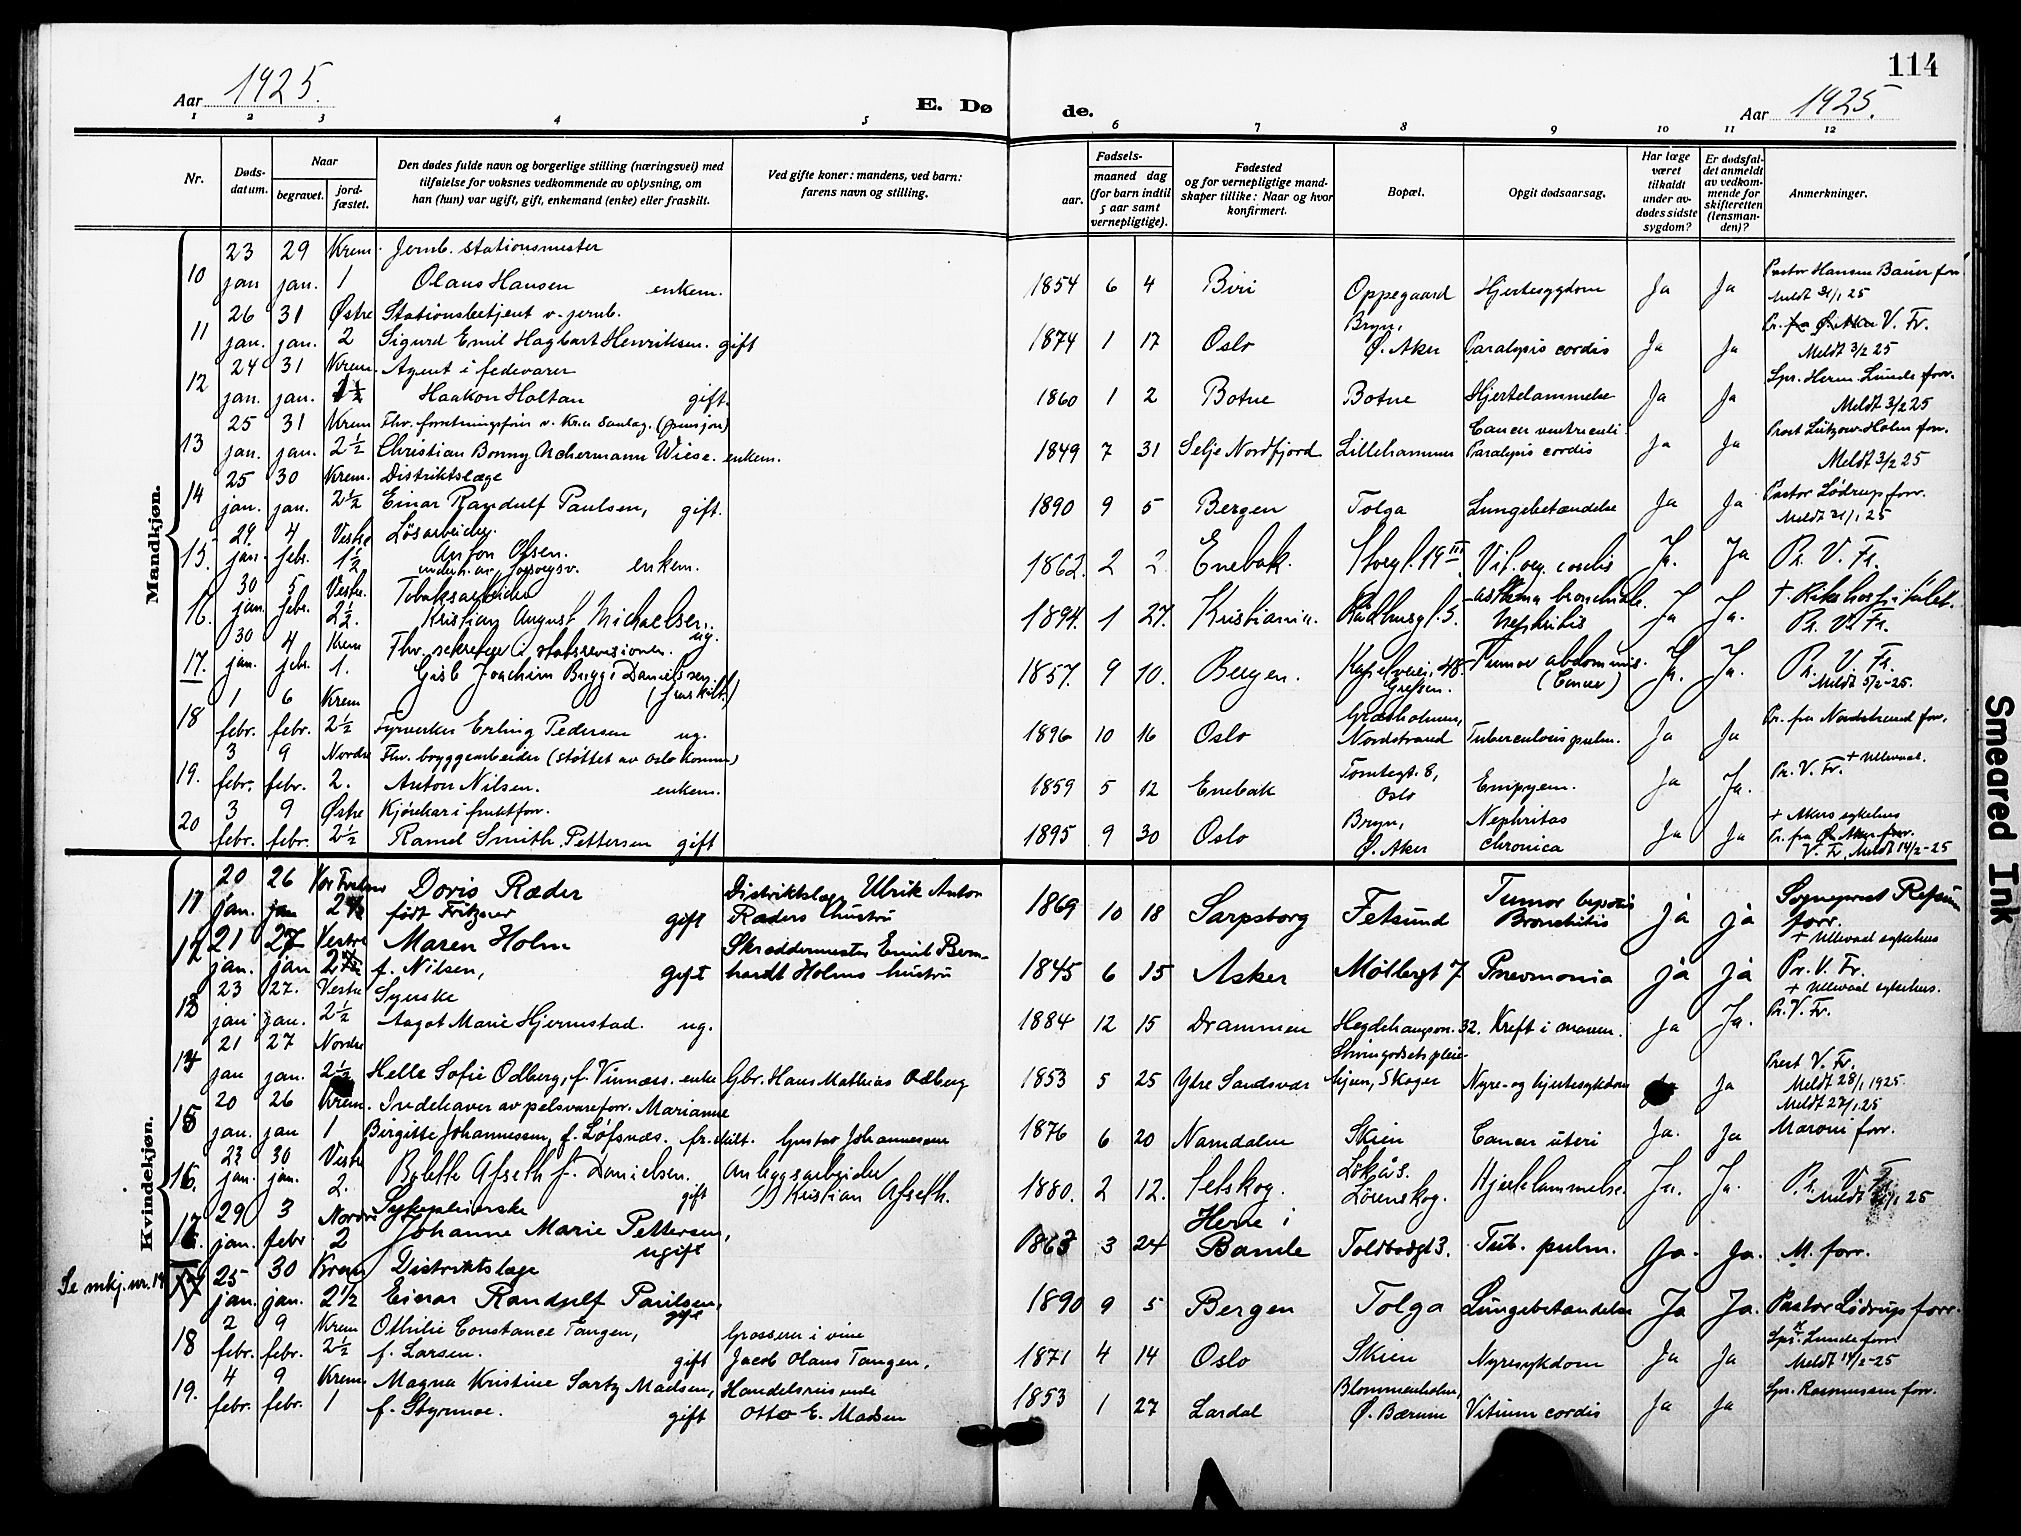 114
Aar 1925.
E. Dø
de.
Aar 1925.
1 2 3 4 5 6 7 8 9 10 11 12
Nr.
Døds-
datum.
Naar
begravet.
jord-
fæstet.
Den dødes fulde navn og borgerlige stilling (næringsvei) med
tilføielse for voksnes vedkommende av oplysning, om
han (hun) var ugift, gift, enkemand (enke) eller fraskilt.
Ved gifte koner: mandens, ved barn:
farens navn og stilling.
Fødsels-
aar.
maaned dag
(for barn indtil
5 aar samt
vernepligtige).
Fødested
og for vernepligtige mand-
skaper tillike: Naar og hvor
konfirmert.
Bopæl.
Opgit dødsaarsag.
Har læge
været
tilkaldt
under av-
dødes sidste
sygdom?
Er dødsfal-
det anmeldt
av vedkom-
mende for
skifteretten
(lensman-
den)?
Anmerkninger.
Mandkjøn.
23 29 Krem. Jernb. stationsmester
10 jan jan. 1 Olaus Hansen enkem. 1854 6 4 Biri Oppegaard Hjertesygdom Ja Ja Pastor Hansen Bauer forr.
Meldt 31/1 25
26 31 Østre Stationsbetjent v. jernb. Bryn,
11 jan. jan. 2 Sigurd Emil Hagbart Henriksen. gift 1874 1 17 Oslo Ø. Aker Paralysis cordis Ja Ja Pr. V. Fr.
Meldt 3/2 25
24 31 Krem. Agent i fedevarer
12 jan. jan. 1½ Haakon Holtan gift. 1860 1 2 Botne Botne Hjertelammelse Ja Ja Spr. Herm. Lunde forr.
Meldt 3/2 25
25 31 Krem Fhv. forretningsfører v. Kr.a Sanlag. (pensjon) Cancer ventriculi
13 jan. jan. 2½ Christian Bonny Achermann Wiese. enkem. 1849 7 31 Selje Nordfjord Lillehammer Paralysis cordis Ja Ja Prost Lützow-Holm forr.
Meldt 3/2 25
25 30 Krem. Distriktslæge
14 jan. jan. 2½ Einar Randulf Paulsen, gift. 1890 9 5 Bergen Tolga Lungebetændelse Ja Ja Pastor Lødrup forr.
Meldt 31/1 25
29. 4 Vestre Løsarbeider.
15. jan. febr. 1½ Anton Olsen. enkem. 1862. 2 2. Enebak. Storgt. 19 III Vit. org. cordis Ja. Ja Pr. V. Fr.
underh. av forsorgsv.
30 5 Vestre. Tobaksarbeider asthma bronchiale. + Rikshospitalet.
16. jan. febr. 2½. Kristian August Michaelsen. ug. 1894. 1 27. Kristiania. Raadhusgt. 5. Nephritis Ja Ja. Pr. V. Fr.
30 4 Krem Fhv. sekretær i statsrevisionen.
17. jan. febr. 1. Gisb Joachim Brygge Danielssen. (fraskilt) 1857. 9 10. Bergen. Kapelveien 48. Grefsen. Tumor abdominis. (Cancer) Ja. Ja. Pr. V. Fr.
Meldt 5/2-25.
1 6 Krem Græsholmen,
18 febr. febr. 2½ Fyrverker Erling Pedersen ug. 1896 10 16 Oslo Nordstrand Tuberculosis pulm. Ja Ja Pr. fra Nordstrand forr.
3 9 Nordre Fhv. bryggearbeider (støttet av Oslo Komm.) Tomtegt. 8, + Ullevaal.
19. febr. febr. 2. Anton Nilsen. enkem. 1859 5 12 Enebak Oslo Empyem. Ja Ja. Pr. V. Fr.
3 9 Østre Kjørekar i fruktforr. Bryn, Nephritas + Akers sykehus
20 febr. febr. 2½ Ramel Smith Pettersen gift 1895 9 30 Oslo Ø. Aker chronica Ja Ja Pr. fra Ø. Aker forr.
V. Fr. Meldt 14/2-25
Kvindekjøn.
20 26 Vor Frelser Doris Ræder Distriktslæge Ulrik Anton Tumor
11 jan. jan 2½ født Fritzner gift Ræders hustru 1869 10 18 Sarpsborg Fetsund Bronchitis ja ja Sogneprest Refsum
forr.
21 27 Vestre Maren Holm Skræddermester Emil Bern- + Ullevaal sykehus
12 jan. jan 2½ f. Nilsen, gift hardt Holms hustru 1845 6 15 Asker Møllergt 7 Pneumonia ja ja Pr. V. Fr.
23 27. Vestre Syerske + Ullevaal sykehus.
13 jan. jan. 2½ Aagot Marie Hjermstad. ug. 1884 12 15 Drammen Hegdehaugsv. 32. Kreft i maven. Ja Ja. Pr. V. Fr.
21 27 Nordre Strømgodsets pleie-
14 jan jan. 2½ Helle Sofie Odberg, f. Vinnæss. enke Gbr. Hans Mathias Odberg 1853 5 25 Ytre Sandsvær hjem, Skoger Nyre- og hjertesykdom Ja Prest V. Fr.
Meldt 28/1 1925
20 26 Krem. Indehaver av pelsvareforr. Marianne Meldt 27/1 25
15 jan. jan 1 Birgitte Johannessen, f. Løfsnæs. fraskilt. Gustav Johannessen 1876 6 20 Namdalen Skien Cancer uteri Ja. Ja Maroni forr.
23 30 Vestre Lokås.
16. jan. jan. 2. Bolette Afseth f. Danielsen. gift Anlægsarbeider Kristian Afseth. 1880. 2 12. Setskog. Lørenskog. Hjertelammelse. Ja. Ja. Pr. V. Fr.
Meldt 31/1 25
29 3 Nordre Sykepleierske Herre i
17 jan. febr 2 Johanne Marie Pettersen, ugift 1863 3 24 Bamle Toldbodgt 3. Tub. pulm. Ja. Ja. M. forr.
Se mkj. nr. 14
25 30 Krem Distriktslæge
17 jan. jan. 2 1/2 Einar Randulf Paulsen, gift 1890 9 5 Bergen Tolga Lungebetændelse Ja Ja. Pastor Lødrup forr.
2 9 Krem Othilie Constance Tangen, Grosserer i vine Spr. Lunde forr
18 febr. febr. 2½ f. Larsen. gift Jacob Olaus Tangen, 1871 4 14 Oslo Skien Nyresykdom Ja Ja Meldt 14/2-25
4 9 Krem. Magna Kristine Sartz Madsen, Handelsreisende Blommenholm, Spr. Rasmussen forr.
19. febr. febr. 1 f. Styrmoe. gift Otto E. Madsen 1853 1 27 Lardal Ø. Bærum Vitium cordis Ja Ja
Smeared Ink